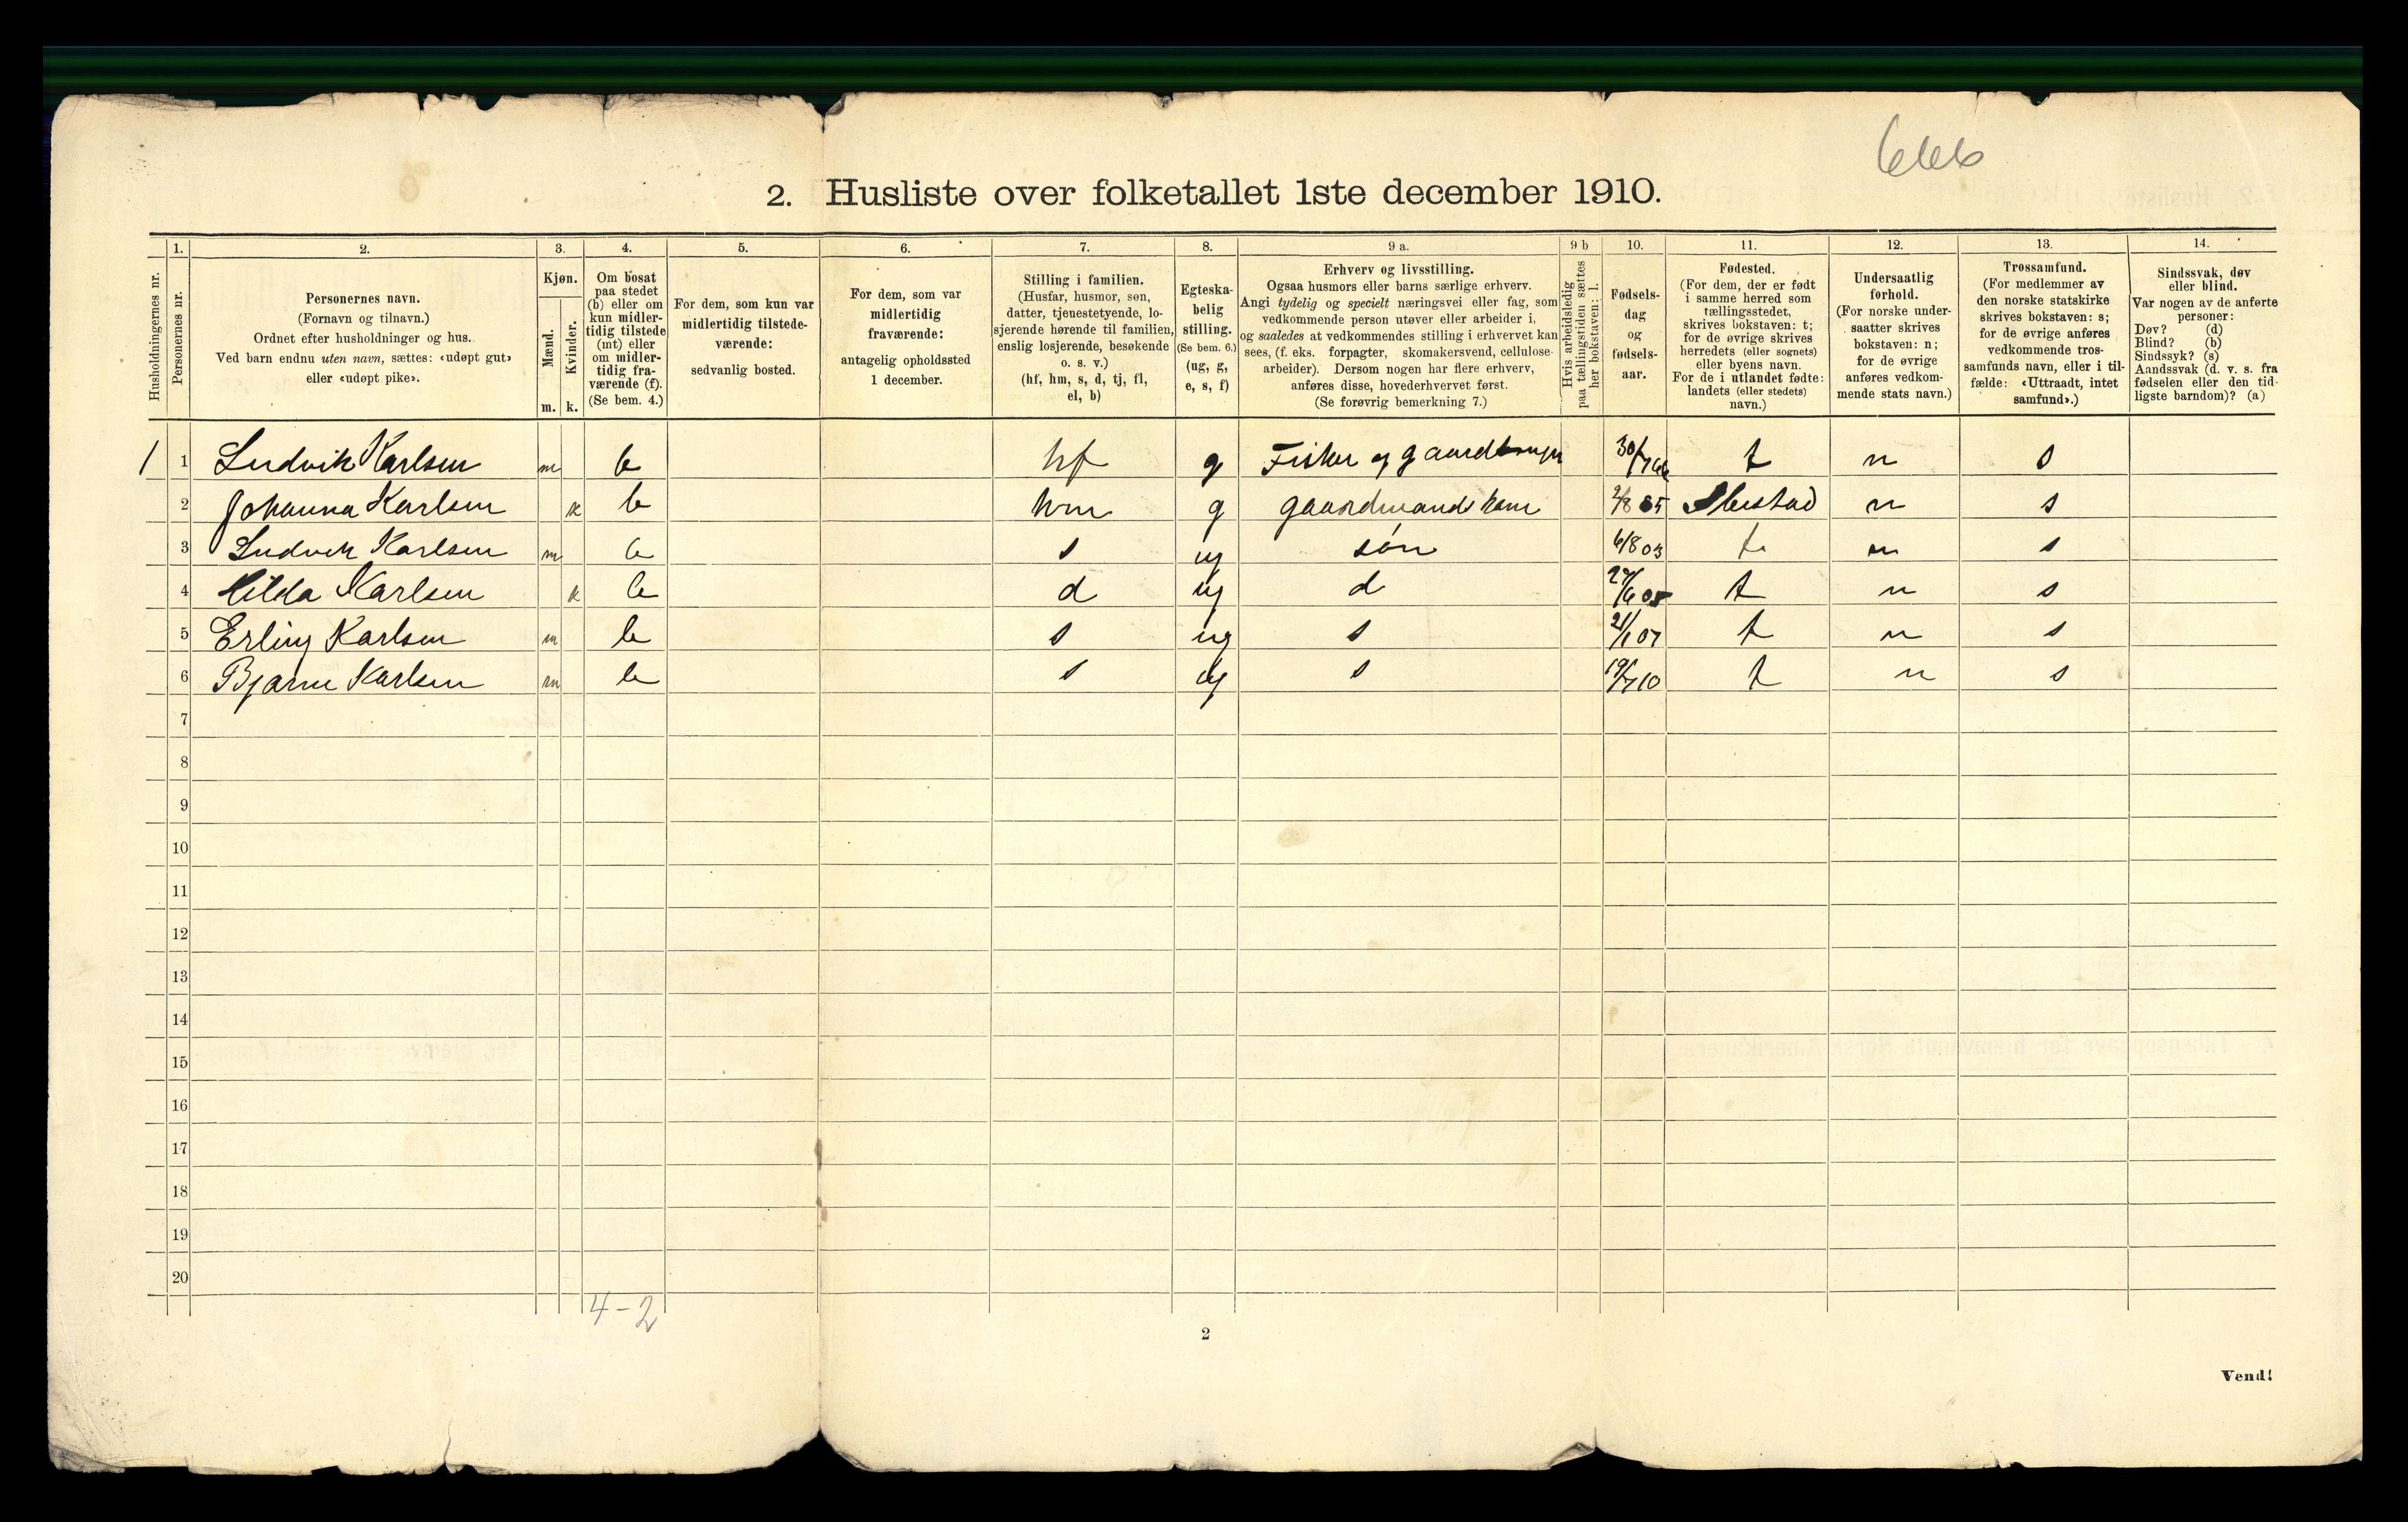 666
2. Husliste over folketallet 1ste december 1910.
1. 2. 3. 4. 5. 6. 7. 8. 9 a. 9 b 10. 11. 12. 13. 14.
Husholdningernes nr.
Personernes nr.
Personernes navn.
(Fornavn og tilnavn.)
Ordnet efter husholdninger og hus.
Ved barn endnu uten navn, sættes: «udøpt gut»
eller «udøpt pike».
Kjøn.
Mænd.
Kvinder.
m. k.
Om bosat
paa stedet
(b) eller om
kun midler-
tidig tilstede
(mt) eller
om midler-
tidig fra-
værende (f).
(Se bem. 4.)
For dem, som kun var
midlertidig tilstede-
værende:
sedvanlig bosted.
For dem, som var
midlertidig
fraværende:
antagelig opholdssted
1 december.
Stilling i familien.
(Husfar, husmor, søn,
datter, tjenestetyende, lo-
sjerende hørende til familien,
enslig losjerende, besøkende
o. s. v.)
(hf, hm, s, d, tj, fl,
el, b)
Egteska-
belig
stilling.
(Se bem. 6.)
(ug, g,
e, s, f)
Erhverv og livsstilling.
Ogsaa husmors eller barns særlige erhverv.
Angi tydelig og specielt næringsvei eller fag, som
vedkommende person utøver eller arbeider i,
og saaledes at vedkommendes stilling i erhvervet kan
sees, (f. eks. forpagter, skomakersvend, cellulose-
arbeider). Dersom nogen har flere erhverv,
anføres disse, hovederhvervet først.
(Se forøvrig bemerkning 7.)
Hvis arbeidsledig
paa tællingstiden sættes
her bokstaven: l.
Fødsels-
dag
og
fødsels-
aar.
Fødested.
(For dem, der er født
i samme herred som
tællingsstedet,
skrives bokstaven: t;
for de øvrige skrives
herredets (eller sognets)
eller byens navn.
For de i utlandet fødte:
landets (eller stedets)
navn.)
Undersaatlig
forhold.
(For norske under-
saatter skrives
bokstaven: n;
for de øvrige
anføres vedkom-
mende stats navn.)
Trossamfund.
(For medlemmer av
den norske statskirke
skrives bokstaven: s;
for de øvrige anføres
vedkommende tros-
samfunds navn, eller i til-
fælde: «Uttraadt, intet
samfund».)
Sindssvak, døv
eller blind.
Var nogen av de anførte
personer:
Døv? (d)
Blind? (b)
Sindssyk? (s)
Aandssvak (d. v. s. fra
fødselen eller den tid-
ligste barndom)? (a)
1 1 Ludvik Karlsen m b hf g Fisker og gaardbruger 30/7 66 t n s
2 Johanna Karlsen k b hm g gaardmandskone 2/8 85 Ibestad n s
3 Ludvik Karlsen m b s ug søn 6/8 03 t n s
4 Hilda Karlsen k b d ug d 27/6 05 t n s
5 Erling Karlsen m b s ug s 21/1 07 t n s
6 Bjarne Karlsen m b s ug s 19/7 10 t n s
7
8
9
10
11
12
13
14
15
16
17
18
19
20
4-2
2
Vend!